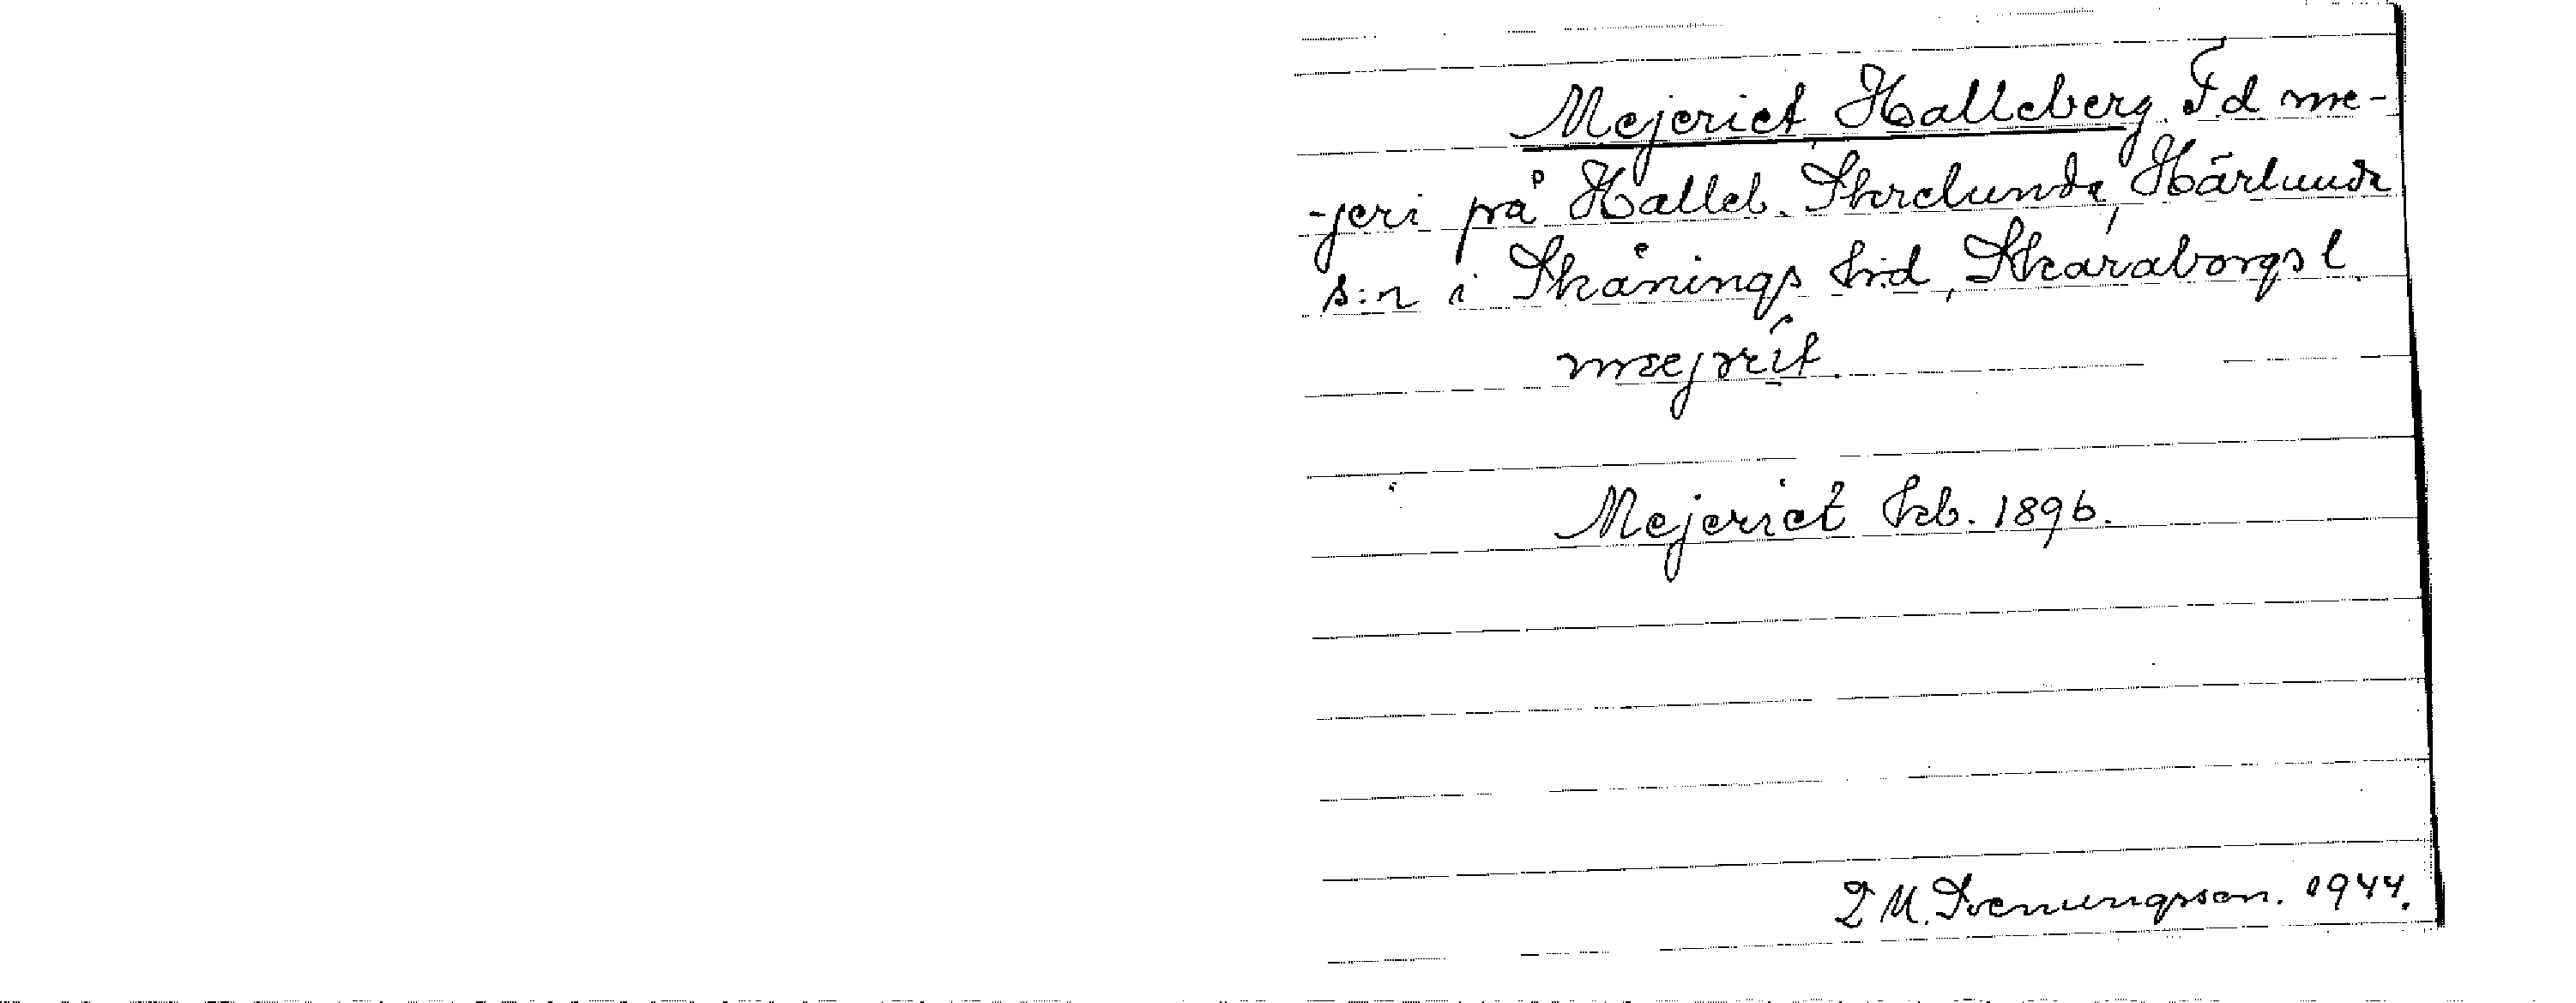 Mejeriet Halleberg. F.d me-
-jeri på Halleb. Skrelunda, Härlunda
s:n i Skånings h:d, Skaraborgs l.
mæjrít.
Mejeriet Kb. 1896.
M. Svenungsson. 1944.